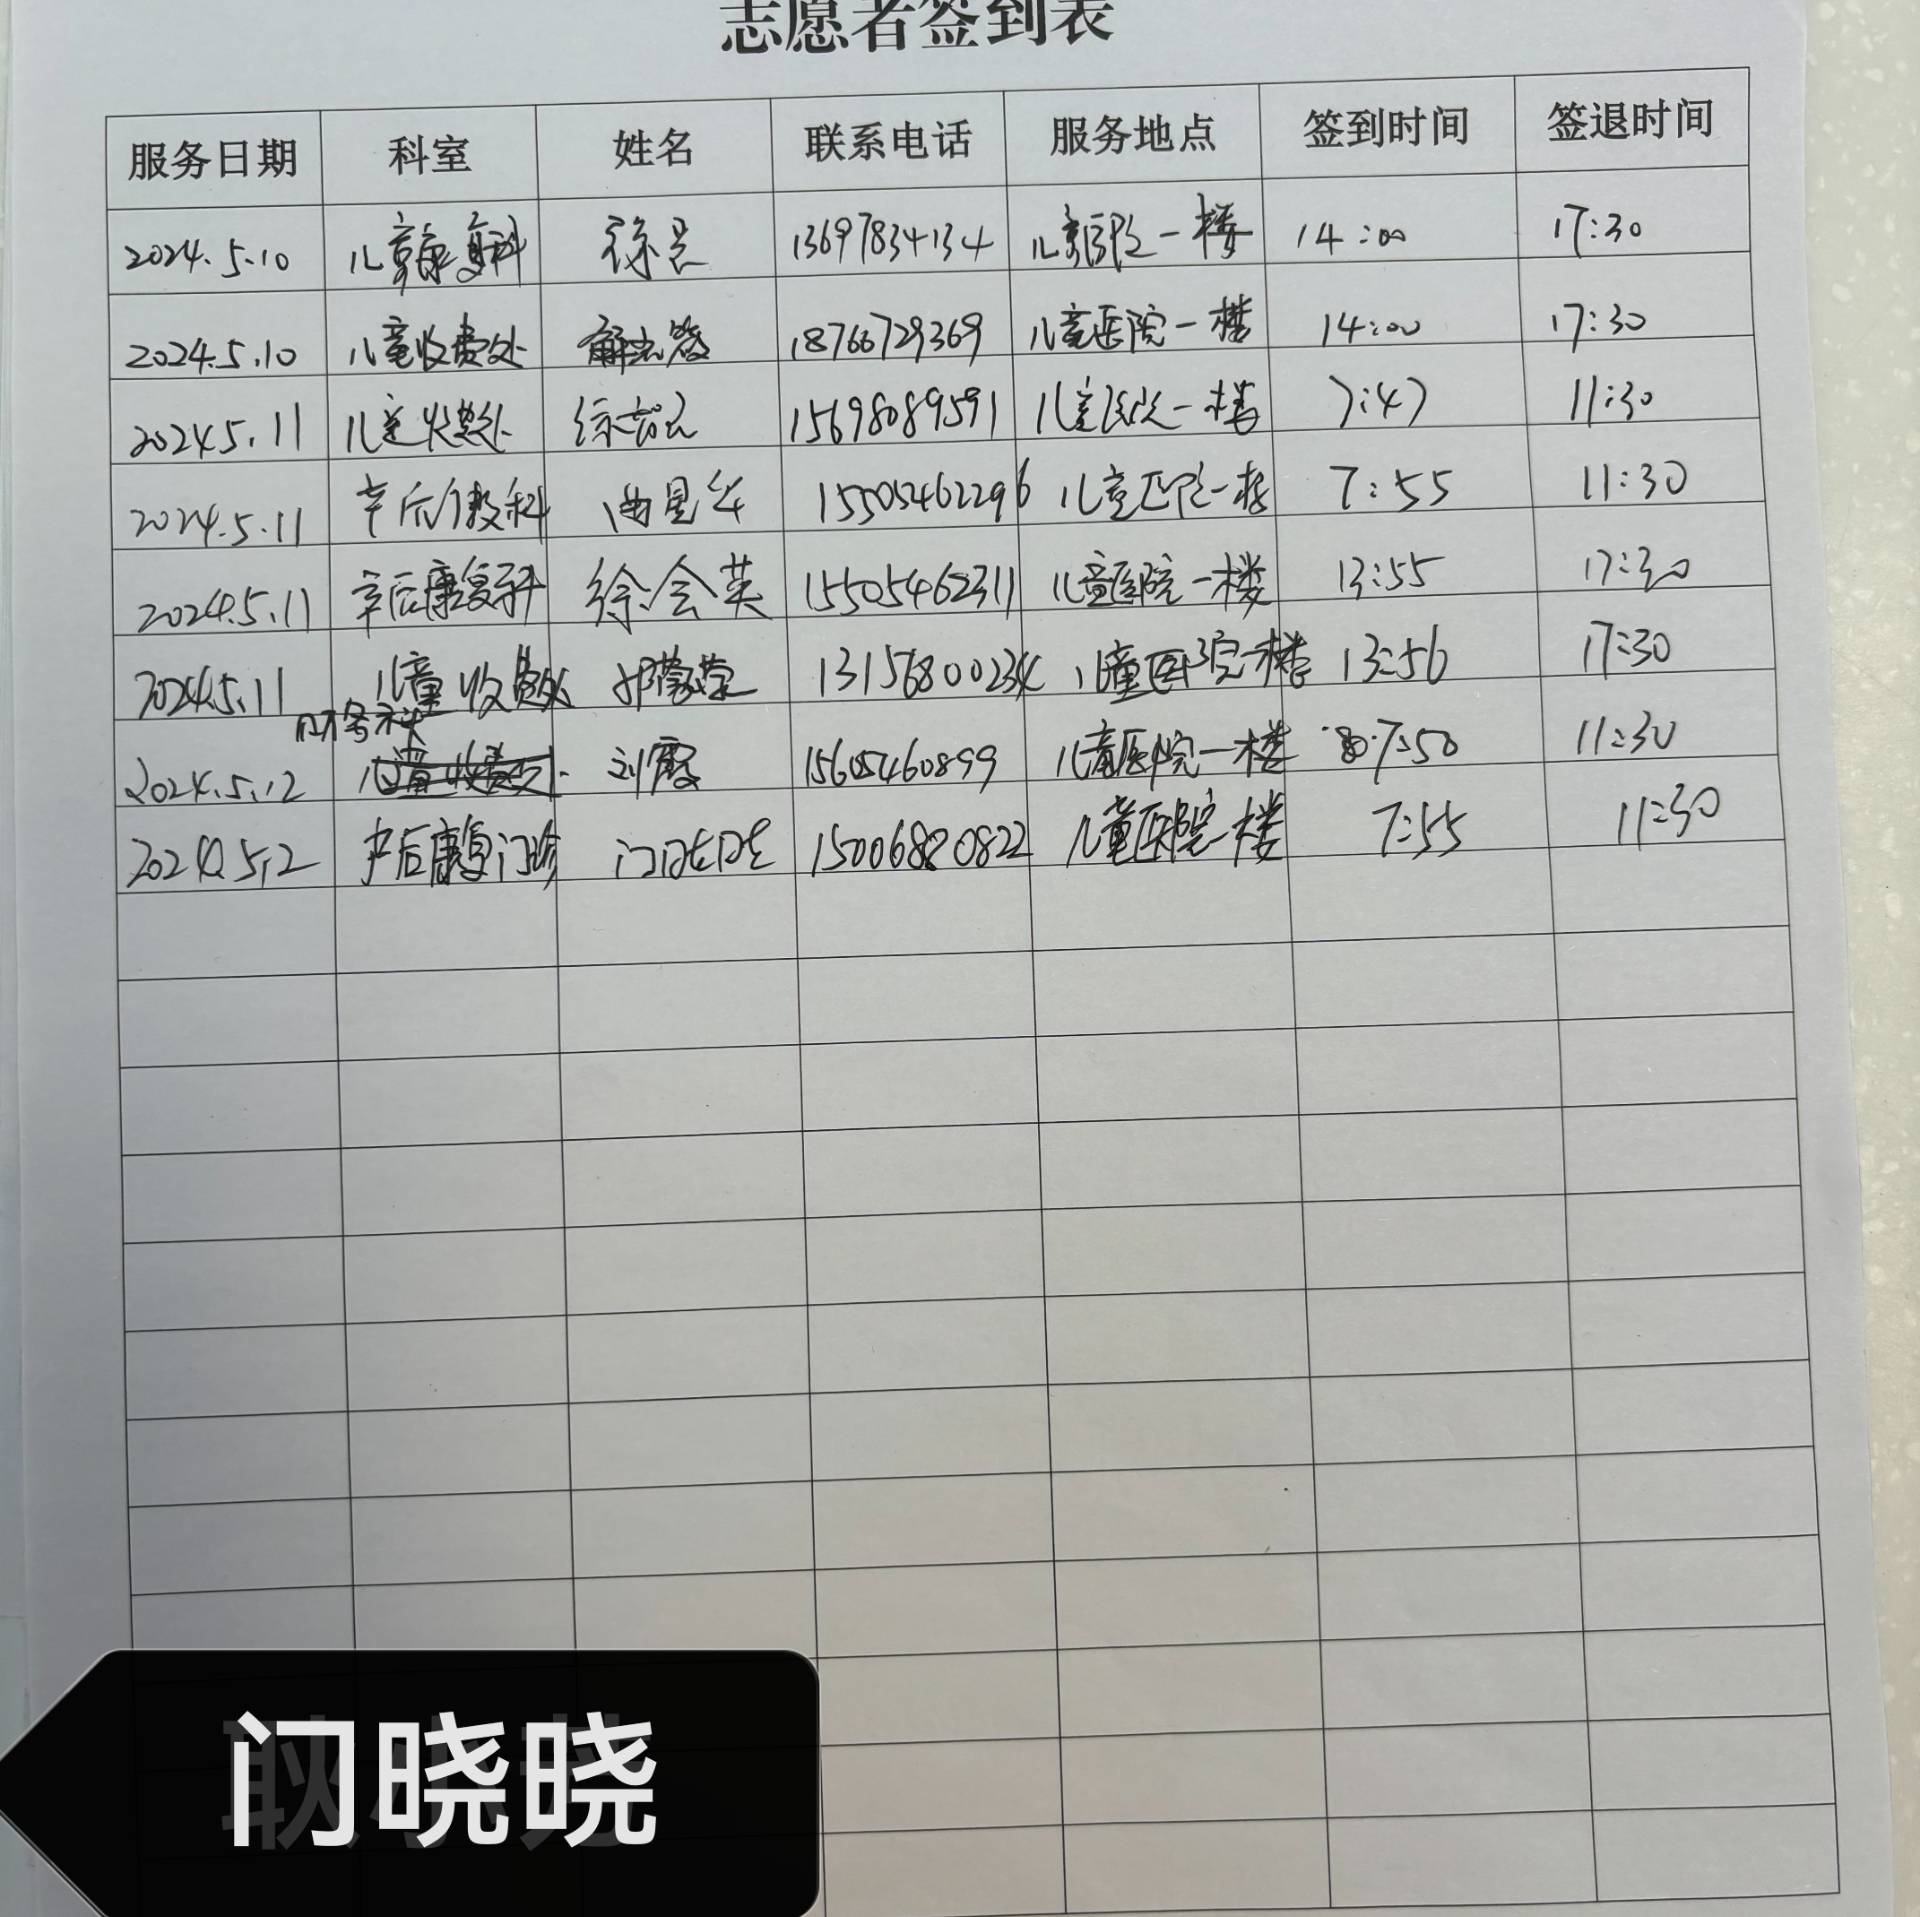 志愿者签到表
服务日期 科室 姓名 联系电话 服务地点 签到时间 签退时间
2024.5.10 儿童康复科 徐 13697834134 儿童医院一楼 14:00 17:30
2024.5.10 儿童收费处 解 18766729369 儿童医院一楼 14:00 17:30
2024.5.11 儿童收费处 15698089591 儿童医院一楼 7:47 11:30
2024.5.11 15505462296 儿童医院一楼 7:55 11:30
2024.5.11 产后康复科 徐会英 15505462311 儿童医院一楼 13:55 17:30
2024.5.11 儿童收费处 13156800234 儿童医院一楼 13:56 17:30
财务科
2024.5.12 儿童收费处 刘霞 15605460899 儿童医院一楼 7:50 11:30
2024.5.12 产后康复门诊 闫晓晓 15006820822 儿童医院一楼 7:55 11:30
闫晓晓